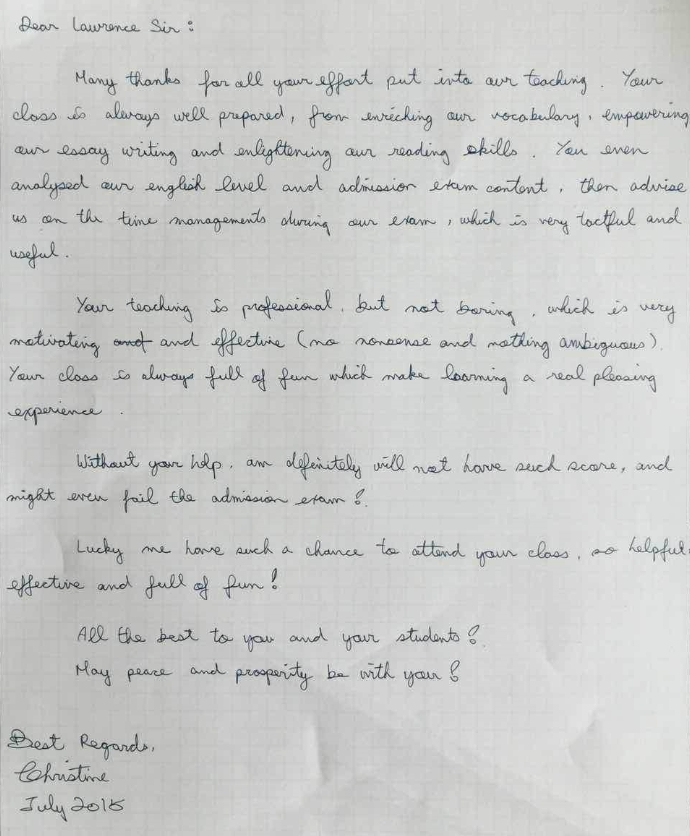 Dear Lawrence Sir :
Many thanks for all your effort put into our teaching. Your
class is always well prepared, from enriching our vocabulary, empowering
our essay writing and enlightening our reading skills. You even
analysed our english level and admission exam content, then advise
us on the time managements during our exam, which is very tactful and
useful.
Your teaching is professional, but not boring, which is very
motivating and and effective (no nonsense and nothing ambiguous).
Your class is always full of fun which make learning a real pleasing
experience.
Without your help, am definitely will not have such score, and
might even fail the admission exam!
Lucky me have such a chance to attend your class, so helpful,
effective and full of fun!
All the best to you and your students!
May peace and prosperity be with your!
Best Regards,
Christine
July 2015